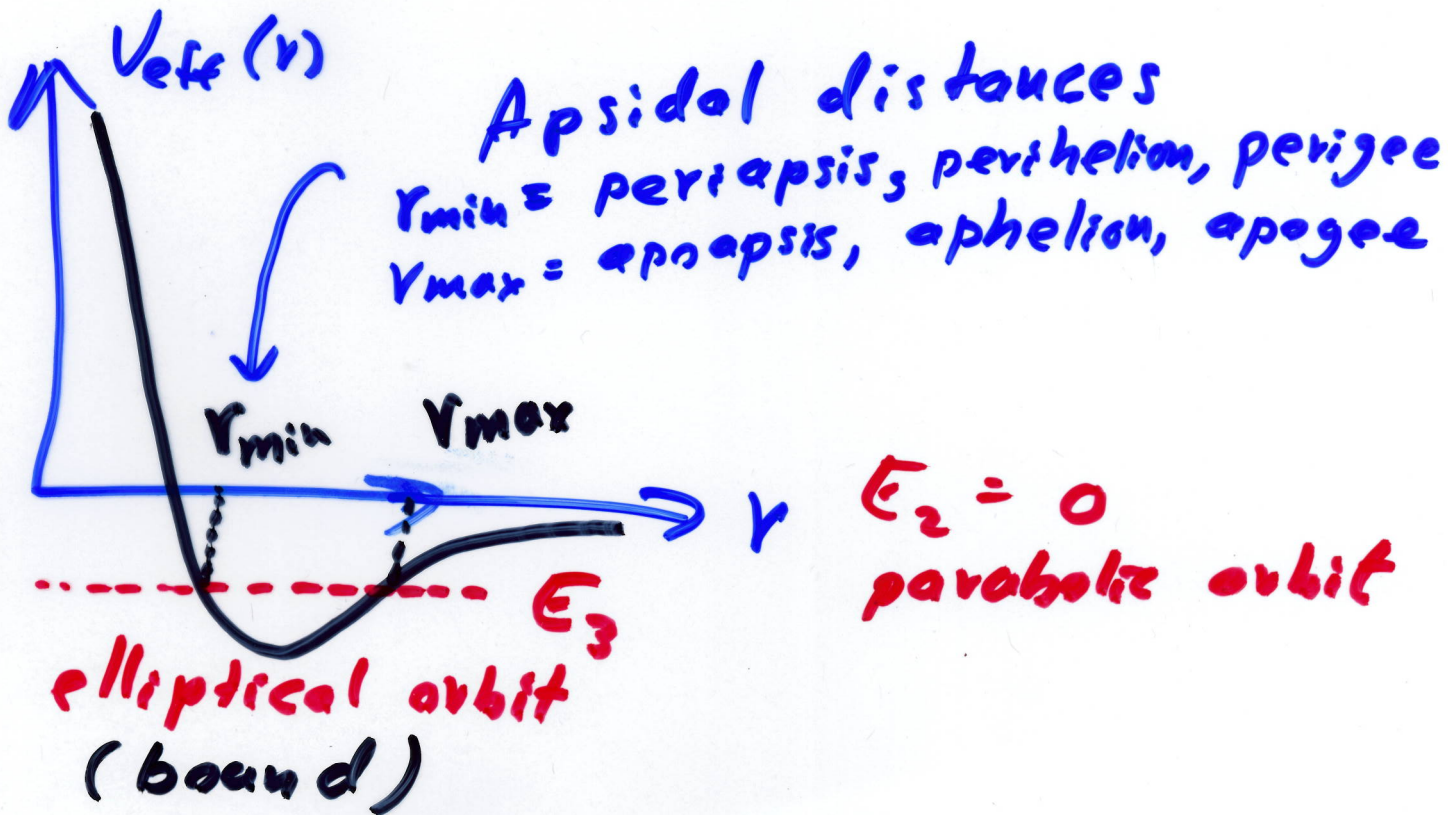 Veff(r)
Apsidal distances
rmin = periapsis, perihelion, perigee
rmax = apoapsis, aphelion, apogee
rmin rmax
r
E2 = 0
parabolic orbit
E3
elliptical orbit
(bound)